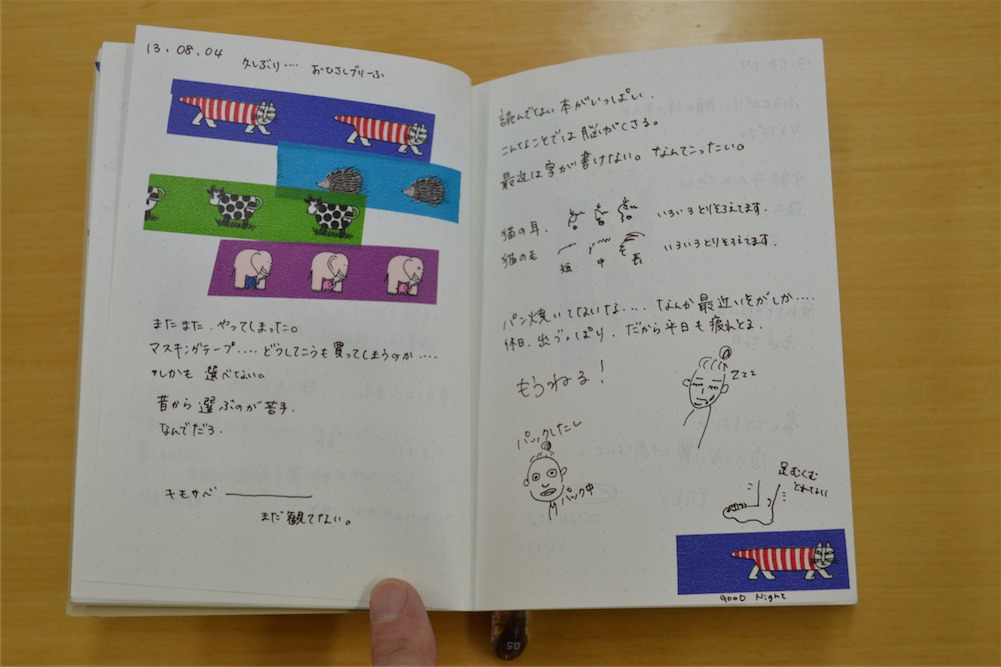 13.08.04
久しぶり‥‥ おひさしブリーふ
またまた、やってしまったこ。
マスキングテープ‥‥どうしてこうも買ってしまうのか‥‥
しかも選べない。
昔から選ぶのが苦手.
なんでだろ.
キモサベ
まだ観てない。
読んでない本がいっぱい.
こんなことでは脳がくさる。
最近は字が書けない。なんてこったい。
猫の耳. いろいろとりそろえてます.
猫の毛 いろいろとりそろえてます.
短 中 長
パン焼いてないな‥‥なんか最近いそがしか‥‥
休日、出づっぱり、だから平日も疲れとる.
もうねる!
zzz
パックしたし
パック中
足むくむ
とれない
GOOD Night
0.5